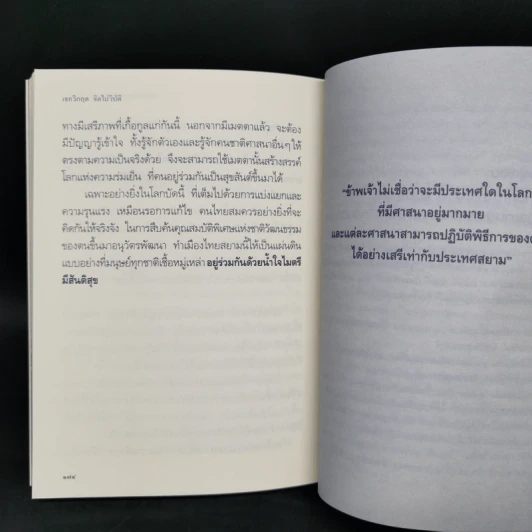 เจอวิกฤต จิตไม่วิบัติ
ทางมีเสรีภาพที่เกื้อกูลแก่กันนี้ นอกจากมีเมตตาแล้ว จะต้อง
มีปัญญารู้เข้าใจ ทั้งรู้จักตัวเองและรู้จักคนชาติศาสนาอื่นๆ ให้
ตรงตามความเป็นจริงด้วย จึงจะสามารถใช้เมตตานั้นสร้างสรรค์
โลกแห่งความร่มเย็น ที่คนอยู่ร่วมกันเป็นสุขสันต์ขึ้นมาได้
เฉพาะอย่างยิ่งในโลกบัดนี้ ที่เต็มไปด้วยการแบ่งแยกและ
ความรุนแรง เหมือนรอการแก้ไข คนไทยสมควรอย่างยิ่งที่จะ
คิดกันให้จริงจัง ในการสืบค้นคุณสมบัติพิเศษแห่งชาติวัฒนธรรม
ของตนขึ้นมาอนุวัตรพัฒนา ทำเมืองไทยสยามนี้ให้เป็นแผ่นดิน
แบบอย่างที่มนุษย์ทุกชาติเชื้อหมู่เหล่า อยู่ร่วมกันด้วยน้ำใจไมตรี
มีสันติสุข
๑๗๔
"ข้าพเจ้าไม่เชื่อว่าจะมีประเทศใดในโลก
ที่มีศาสนาอยู่มากมาย
และแต่ละศาสนาสามารถปฏิบัติพิธีการของ
ได้อย่างเสรีเท่ากับประเทศสยาม"